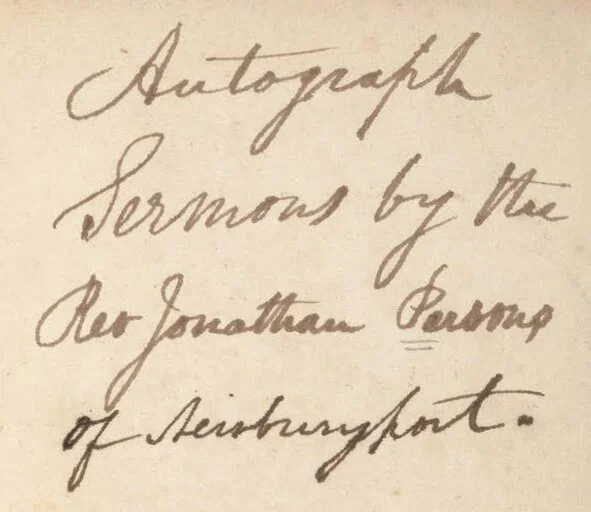 Autograph
Sermons by the
Rev Jonathan Parsons
of Newburyport.